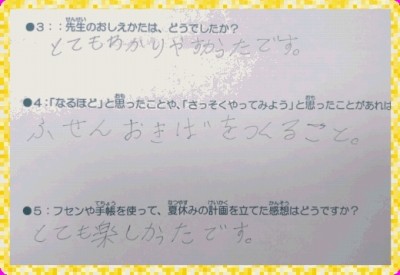 ●3：：先生のおしえかたは、どうでしたか？
とてもわかりやすかったです。
●4：「なるほど」と思ったことや、「さっそくやってみよう」と思ったことがあれば
ふせんおきばをつくること。
●5：フセンや手帳を使って、夏休みの計画を立てた感想はどうですか？
とても楽しかったです。